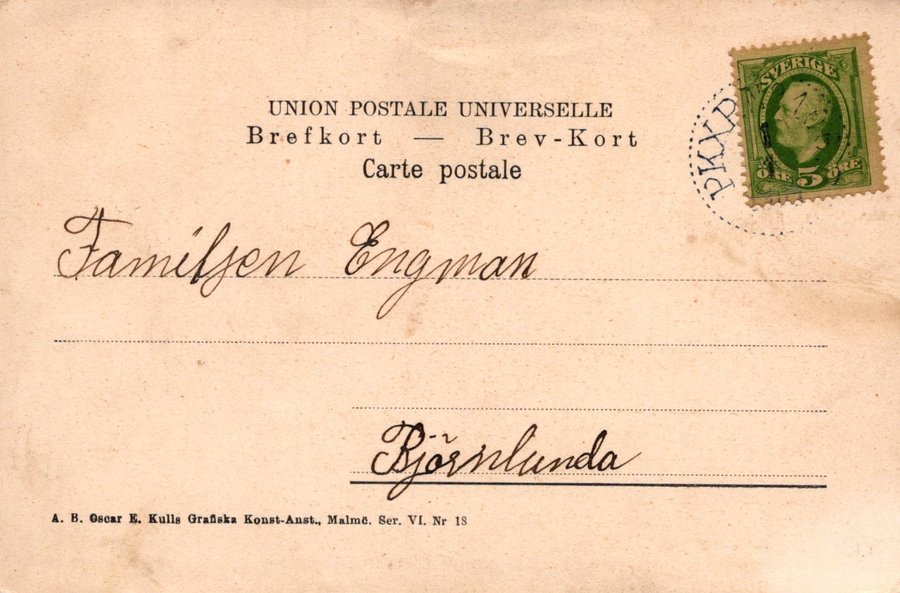 UNION POSTALE UNIVERSELLE
Brefkort — Brev-Kort
Carte postale
SVERIGE
ÖRE 5 ÖRE
PKXP
Familjen Engman
Björnlunda
A. B. Oscar E. Kulls Grafiska Konst-Anst., Malmö. Ser. VI. Nr 18